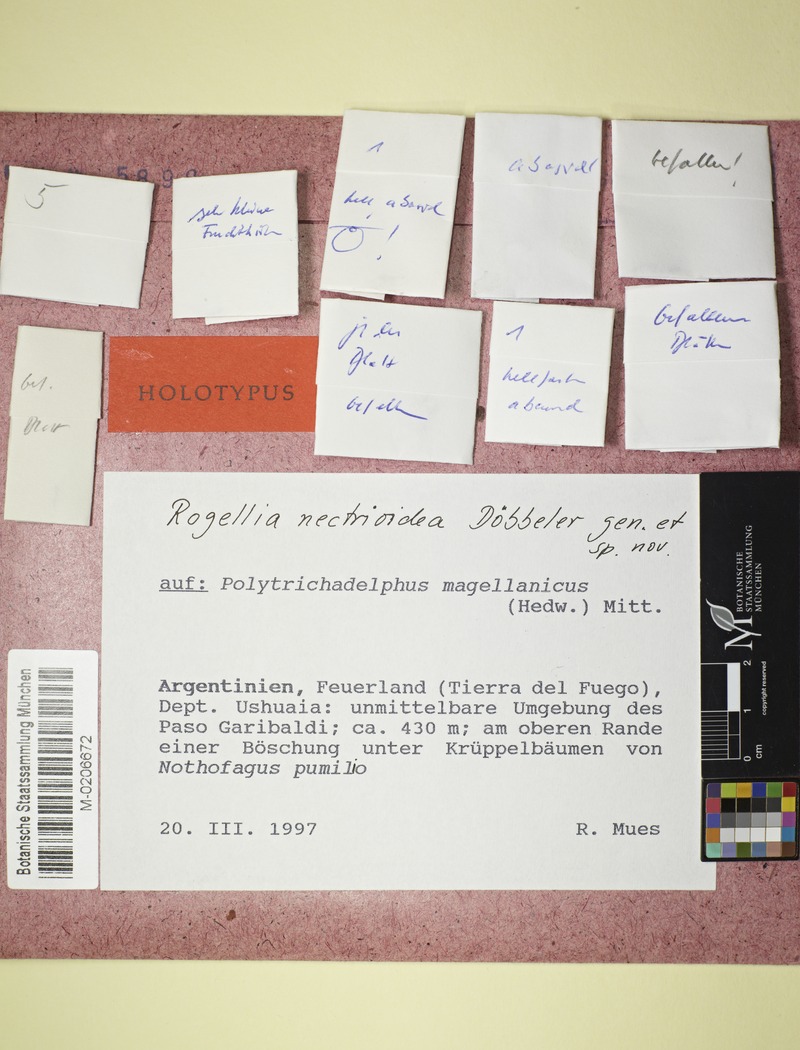 5
sehr kleine
1
!
befallen!
bef.
Blatt
HOLOTYPUS
Blatt
1
befallene
Rogellia nectrioidea Döbbeler gen. et
sp. nov.
auf: Polytrichadelphus magellanicus
(Hedw.) Mitt.
Argentinien, Feuerland (Tierra del Fuego),
Dept. Ushuaia: unmittelbare Umgebung des
Paso Garibaldi; ca. 430 m; am oberen Rande
einer Böschung unter Krüppelbäumen von
Nothofagus pumilio
20. III. 1997 R. Mues
Botanische Staatssammlung München
M-0206672
BOTANISCHE
STAATSSAMMLUNG
MÜNCHEN
0 1 2
cm
copyright reserved